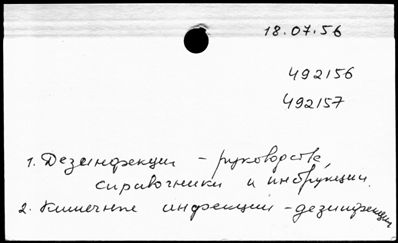 18.07.56
492156
492157
1. Дезинфекция - руководства,
справочники и инструкции.
2. Кишечные инфекции - дезинфекция